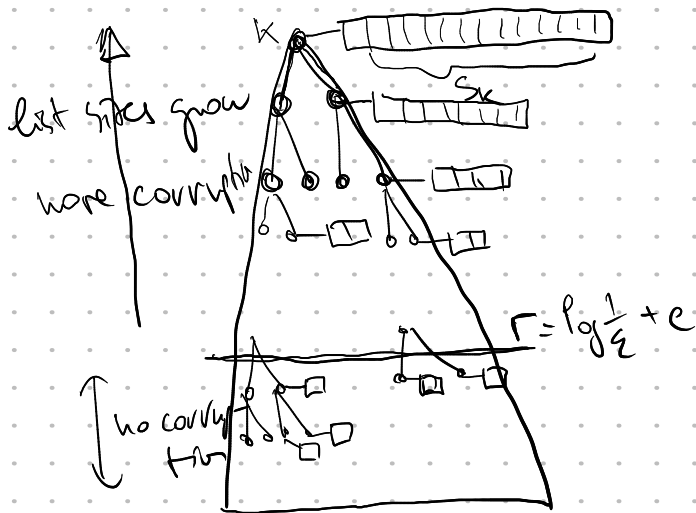 K
S_K
list sizes grow
more corruption
r = log 1/ε + c
no corrup
tion